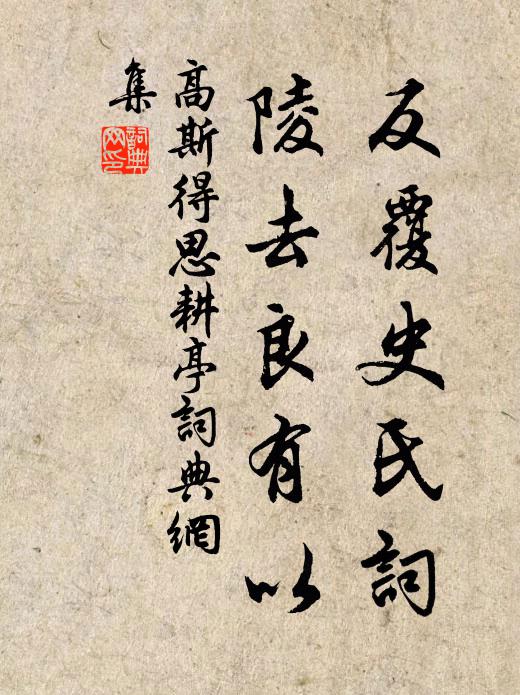 反覆史氏詞
陵去良有以
高斯得思耕亭詞典網
集
詞典網印